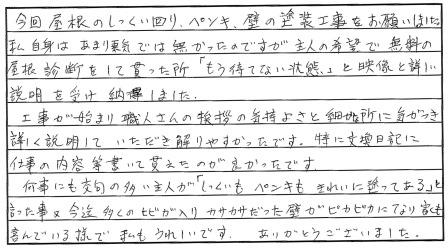 今回屋根のしっくい回り、ペンキ、壁の塗装工事をお願いしました
私自身はあまり乗気では無かったのですが主人の希望で無料の
屋根診断をして貰った所「もう待てない状態、」と映像と詳しい
説明を受け納得しました。
工事が始まり職人さんの挨拶の気持よさと細い所に気がつき
詳しく説明していただき解りやすかったです。特に交換日記に
仕事の内容等書いて貰えたのが良かったです。
何事にも文句の多い主人が「しっくいもペンキもきれいに塗ってある」と
言った事、又今迄多くのヒビが入りカサカサだった壁がピカピカになり家も
喜んでいる様で私もうれしいです。ありがとうございました。